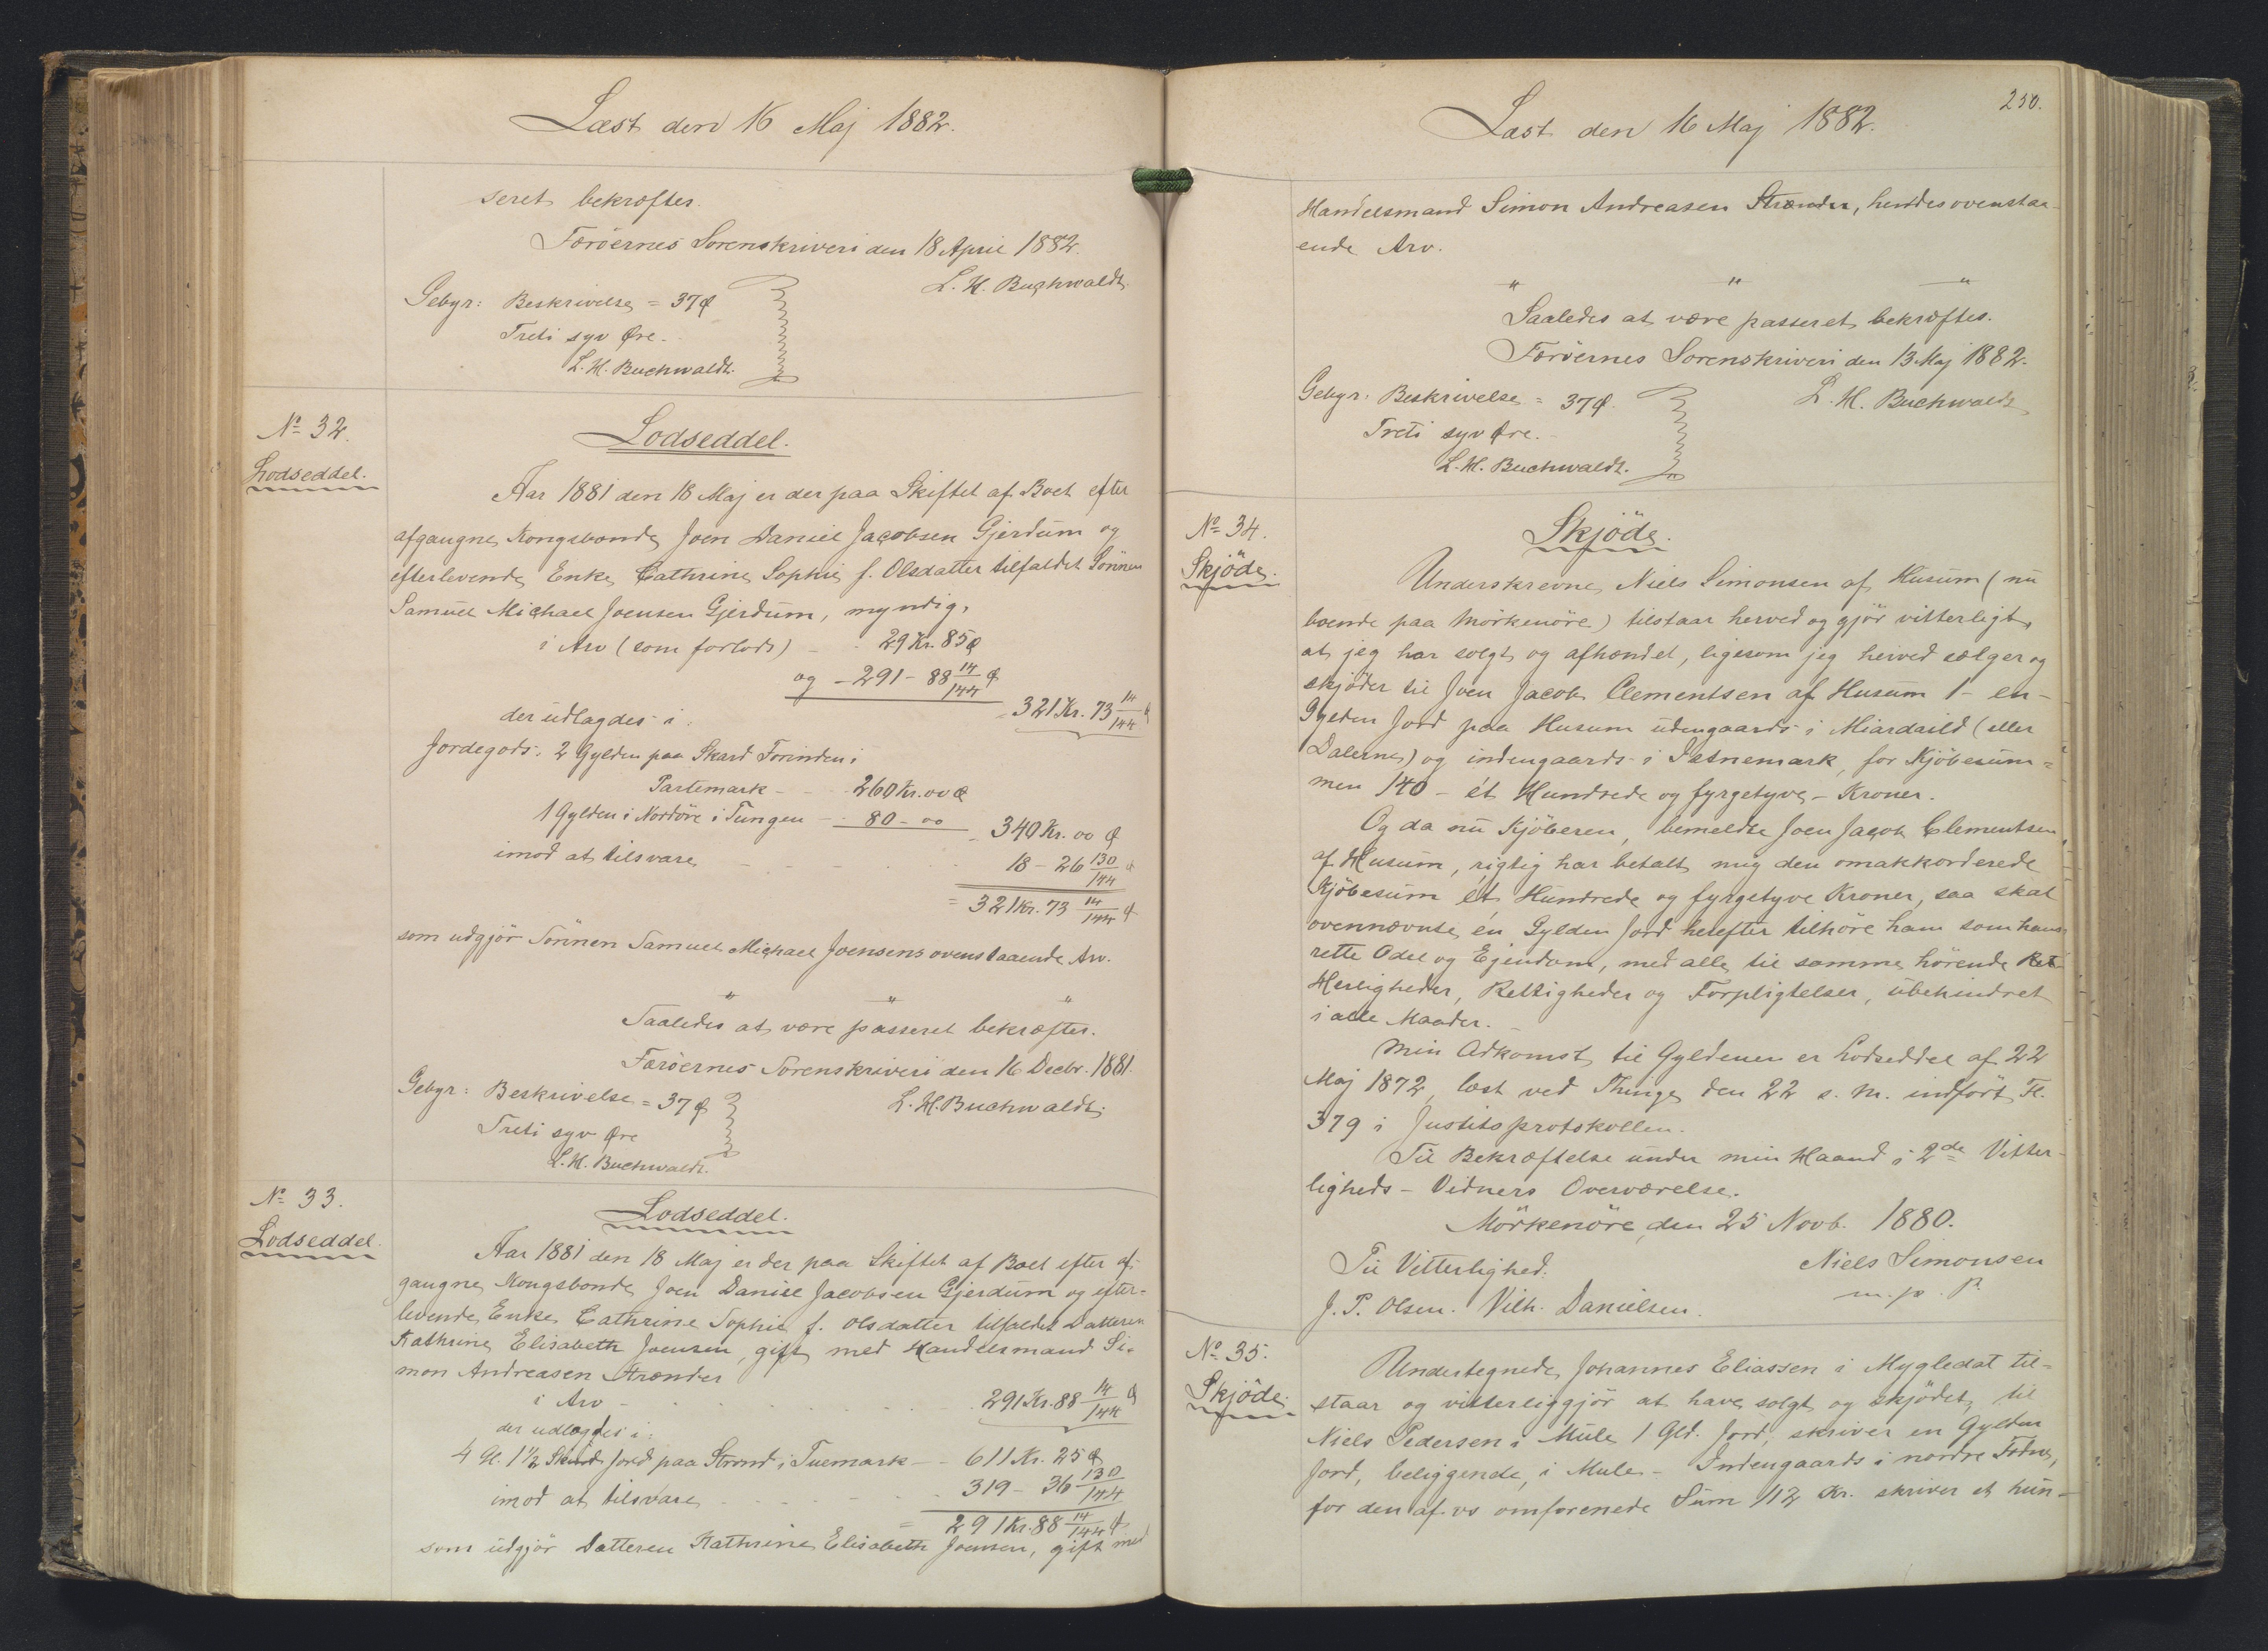 Læst den 16 Maj 1882.
seret bekræftes.
Færöernes Sorenskriveri den 18 April 1882.
L. H. Buchwaldt.
Gebyr: Beskrivelse = 37 Ø
Treti syv Øre.
L. H. Buchwaldt.
No 32.
Lodseddel.
Lodseddel.
Aar 1881 den 18 Maj er der paa Skiftet af Boet efter
afgangne Kongsbonde Joen Daniel Jacobsen Gjerdum og
efterlevende Enke Cathrine Sophie f. Olsdatter tilfaldet Sönnen
Samuel Michael Joensen Gjerdum, myndig,
i Arv (som forlods) - - 29 Kr. 85 Ø
og - 291 - 88 14/144 Ø
= 321 Kr. 73 14/144 Ø
der udlagdes i:
Jordegods: 2 Gylden paa Skard Forinden i
Partemark - - 260 Kr. 00 Ø
1 Gylden i Nordöre i Tungen - - 80 - 00
340 Kr. 00 Ø
imod at tilsvare - - - - 18 - 26 130/144 Ø
= 321 Kr. 73 14/144 Ø
som udgjör Sönnen Samuel Michael Joensens ovenstaaende Arv.
" " "
Saaledes at være passeret bekræftes.
Færöernes Sorenskriveri den 16 Decbr. 1881.
Gebyr: Beskrivelse = 37 Ø
L. H. Buchwaldt.
Treti syv Øre
L. H. Buchwaldt.
No 33.
Lodseddel.
Lodseddel.
Aar 1881 den 18 Maj er der paa Skiftet af Boet efter af-
gangne Kongsbonde Joen Daniel Jacobsen Gjerdum og efter-
levende Enke Cathrine Sophie f. Olsdatter tilfaldet Datteren
Kathrine Elisabeth Joensen, gift med Handelsmand Si-
mon Andreasen Strænder
i Arv - - - - 291 Kr. 88 14/144 Ø
der udlagdes i:
4 Gl. 1½ Skind Jord paa Strond i Tuemark - - 611 Kr. 25 Ø
imod at tilsvare - - - - 319 - 36 130/144
= 291 Kr. 88 14/144 Ø
som udgjör Datteren Kathrine Elisabeth Joensen, gift med
250.
Læst den 16 Maj 1882.
Handelsmand Simon Andreasen Strænder, hendes ovenstaa-
ende Arv.
" " "
Saaledes at være passeret bekræftes.
Færöernes Sorenskriveri den 13 Maj 1882.
Gebyr: Beskrivelse = 37 Ø.
L. H. Buchwaldt
Treti syv Øre.
L. H. Buchwaldt.
No 34.
Skjöde.
Skjöde.
Underskrevne Niels Simonsen af Husum (nu
boende paa Mörkenöre) tilstaar herved og gjör vitterligt,
at jeg har solgt og afhændet, ligesom jeg herved sælger og
skjöder til Joen Jacob Clementsen af Husum 1 - en -
Gylden Jord paa Husum udengaards i Miardaild (eller
Dalerne) og indengaards i Pætnemark, for Kjöbesum-
men 140 - ét Hundrede og fyrgetyve - Kroner.
Og da nu Kjöberen, bemeldte Joen Jacob Clementsen
af Husum, rigtig har betalt mig den omakkorderede
Kjöbesum ét Hundrede og fyrgetyve Kroner, saa skal
ovennævnte én Gylden Jord herefter tilhöre ham som hans
rette Odel og Ejendom, med alle til samme hörende Ret
Herligheder, Rettigheder og Forpligtelser, ubehindret
i alle Maader.
Min Adkomst til Gyldenen er Lodseddel af 22
Maj 1872, læst ved Thinge den 22 s. M. indfört Fl.
379 i Justitsprotokollen.
Til Bekræftelse under min Haand i 2de Vitter-
ligheds - Vidners Overværelse.
Mörkenöre, den 25 Novb. 1880.
Til Vitterlighed:
Niels Simonsen
m. p. P.
J. P. Olsen. Vilh. Danielsen.
No 35.
Skjöde.
Undertegnede Johannes Eliassen i Mygledal til-
staar og vitterliggjör at have solgt og skjödet til
Niels Pedersen i Mule 1 Gld. Jord, skriver en Gylden
Jord, beliggende i Mule - Indengaards i nordre Todne,
for den af os omforenede Sum 112 Kr. skriver et hun-